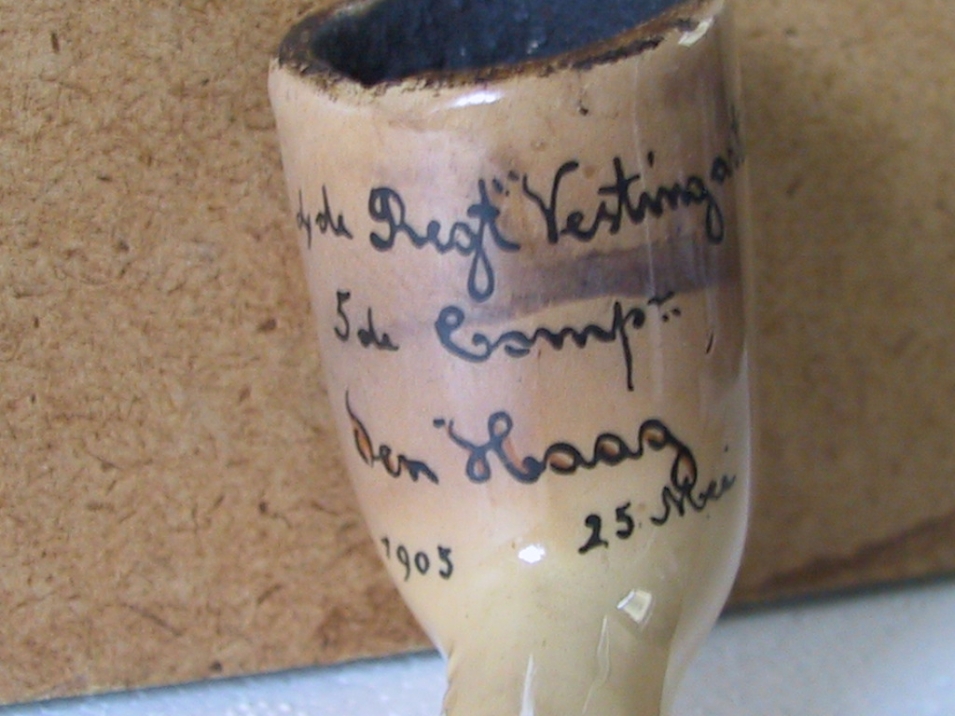 de Regt Vesting
5de Comp
Den Haag
25 Mei
1905